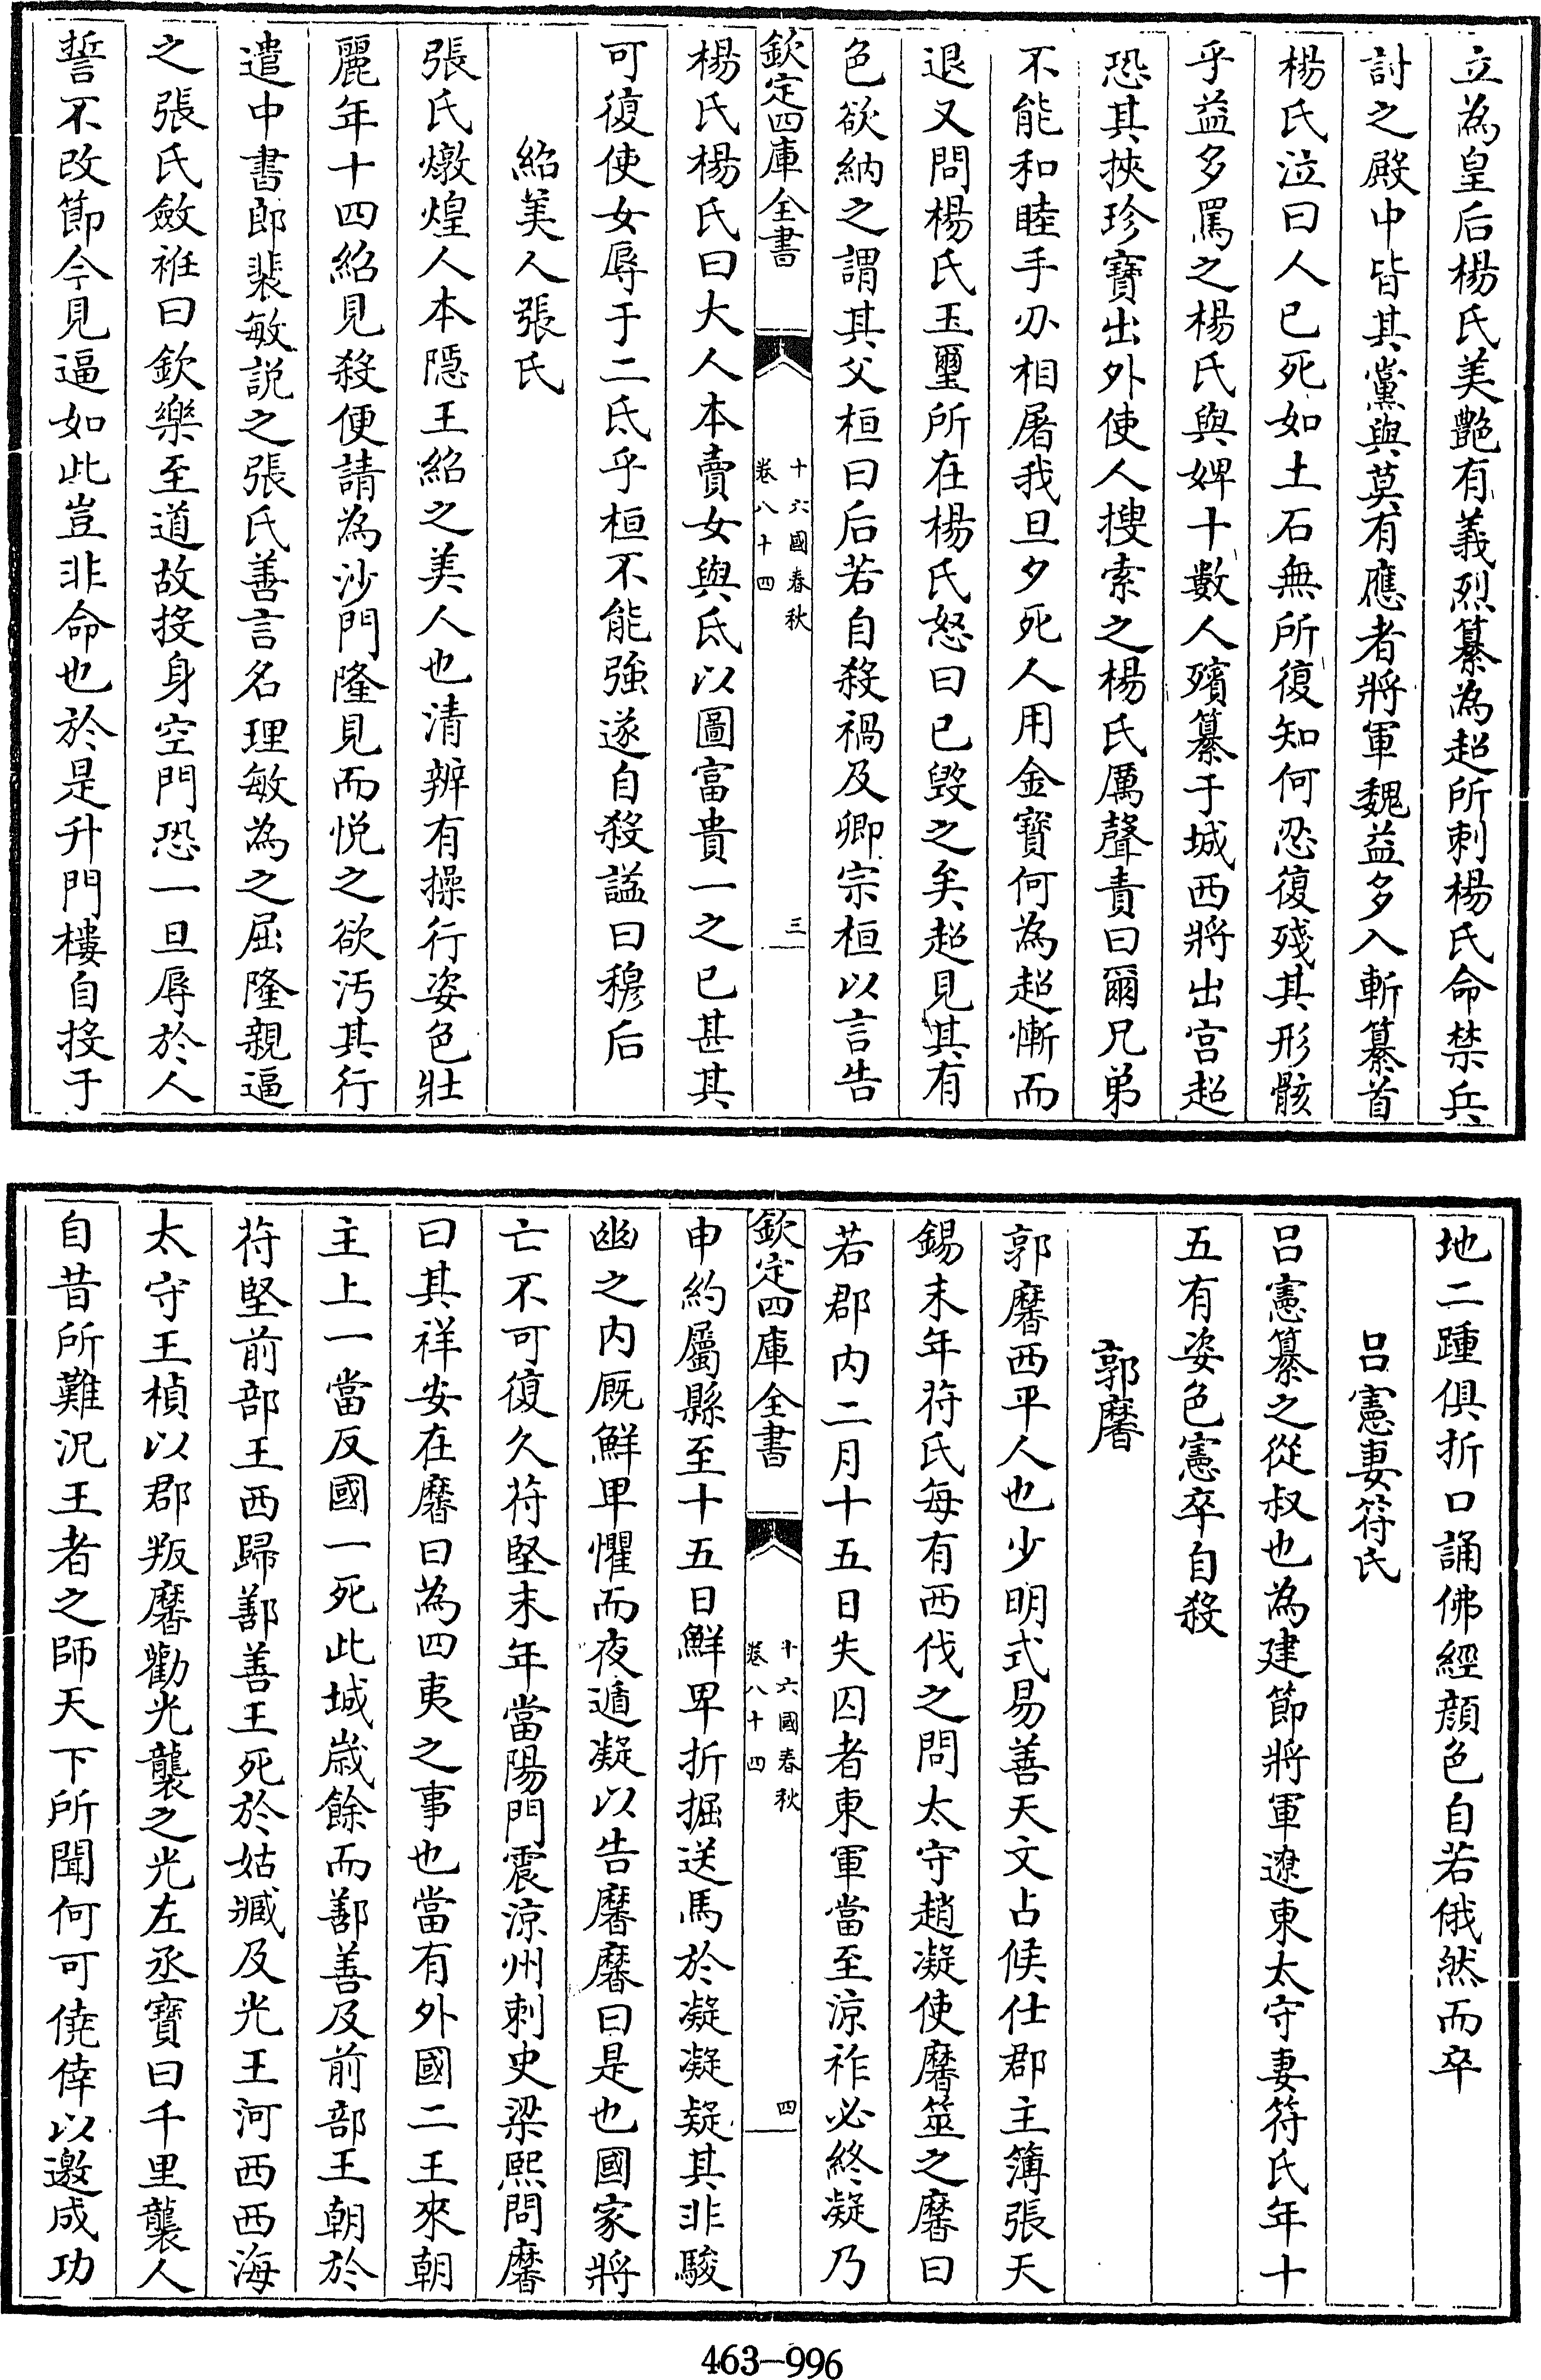 立為皇后楊氏美艶有義烈纂為超所刺楊氏命禁兵
討之殿中皆其黨與莫有應者將軍魏益多入斬纂首
楊氏泣曰人已死如土石無所復知何忍復殘其形骸
乎益多罵之楊氏與婢十數人殯纂于城西將出宫超
恐其挾珍寳出外使人搜索之楊氏厲聲責曰爾兄弟
不能和睦手刃相屠我旦夕死人用金寳何為超慚而
退又問楊氏玉璽所在楊氏怒曰已毀之矣超見其有
色欲納之謂其父桓曰后若自殺禍及卿宗桓以言告
欽定四庫全書
十六國春秋
卷八十四
三
楊氏楊氏曰大人本賣女與氐以圖富貴一之已甚其
可復使女辱于二氐乎桓不能強遂自殺諡曰穆后
紹美人張氏
張氏燉煌人本隠王紹之美人也清辨有操行姿色壯
麗年十四紹見殺便請為沙門隆見而悦之欲汚其行
遣中書郎裴敏説之張氏善言名理敏為之屈隆親逼
之張氏斂袵曰欽樂至道故投身空門恐一旦辱於人
誓不改節今見逼如此豈非命也於是升門樓自投于
地二踵俱折口誦佛經顔色自若俄然而卒
吕憲妻符氏
吕憲纂之從叔也為建節將軍遼東太守妻符氏年十
五有姿色憲卒自殺
郭黁
郭黁西平人也少明式易善天文占候仕郡主簿張天
錫末年符氏每有西伐之問太守趙凝使黁筮之黁曰
若郡内二月十五日失囚者東軍當至涼祚必終凝乃
欽定四庫全書
十六國春秋
卷八十四
四
申約屬縣至十五日鮮卑折掘送馬於凝凝疑其非駿
幽之内厩鮮卑懼而夜遁凝以告黁黁曰是也國家將
亡不可復久符堅末年當陽門震涼州刺史梁熙問黁
曰其祥安在黁曰為四夷之事也當有外國二王來朝
主上一當反國一死此城歲餘而鄯善及前部王朝於
符堅前部王西歸鄯善王死於姑臧及光王河西西海
太守王楨以郡叛黁勸光襲之光左丞寳曰千里襲人
自昔所難況王者之師天下所聞何可僥倖以邀成功
463-996